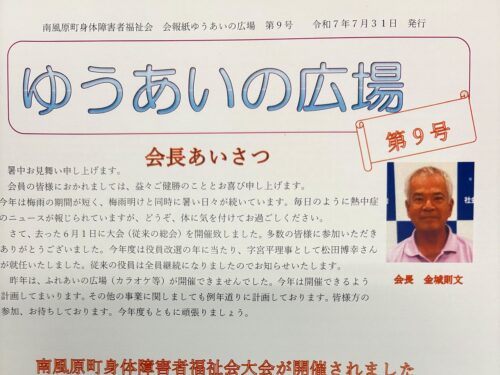 南風原町身体障害者福祉会 会報紙ゆうあいの広場 第9号 令和7年7月31日 発行
ゆうあいの広場
第9号
会長あいさつ
暑中お見舞い申し上げます。
会員の皆様におかれましては、益々ご健勝のこととお喜び申し上げます。
今年は梅雨の期間が短く、梅雨明けと同時に暑い日々が続いています。毎日のように熱中症
のニュースが報じられていますが、どうぞ、体に気を付けてお過ごしください。
さて、去った6月1日に大会（従来の総会）を開催致しました。多数の皆様に参加いただき
ありがとうございました。今年度は役員改選の年に当たり、字宮平理事として松田博幸さん
が就任いたしました。従来の役員は全員継続になりましたのでお知らせいたします。
昨年は、ふれあいの広場（カラオケ等）が開催できませんでした。今年は開催できるよう
計画してまいります。その他の事業に関しましても例年道りに計画しております。皆様方の
参加、お待ちしております。今年度もともに頑張りましょう。
会長 金城則文
南風原町身体障害者福祉会大会が開催されました